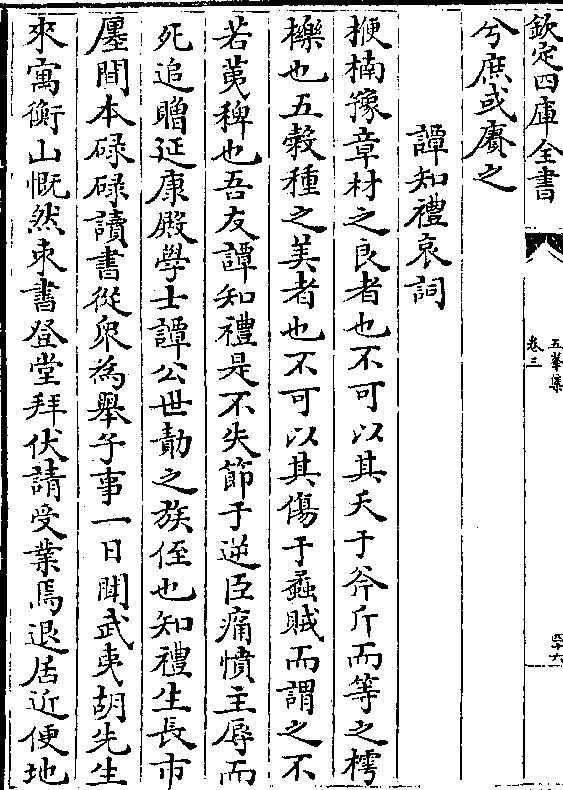 欽定四庫全書
五峯集
卷三
四十六
兮庶或賡之
譚知禮哀詞
楩楠豫章材之良者也不可以其夭于斧斤而等之樗
櫟也五榖種之美者也不可以其傷于蟊賊而謂之不
若荑稗也吾友譚知禮是不失節于逆臣痛憤主辱而
死追贈延康殿學士譚公世勣之族侄也知禮生長市
廛間本碌碌讀書從衆為舉子事一日聞武夷胡先生
來寓衡山慨然束書登堂拜伏請受業焉退居近便地